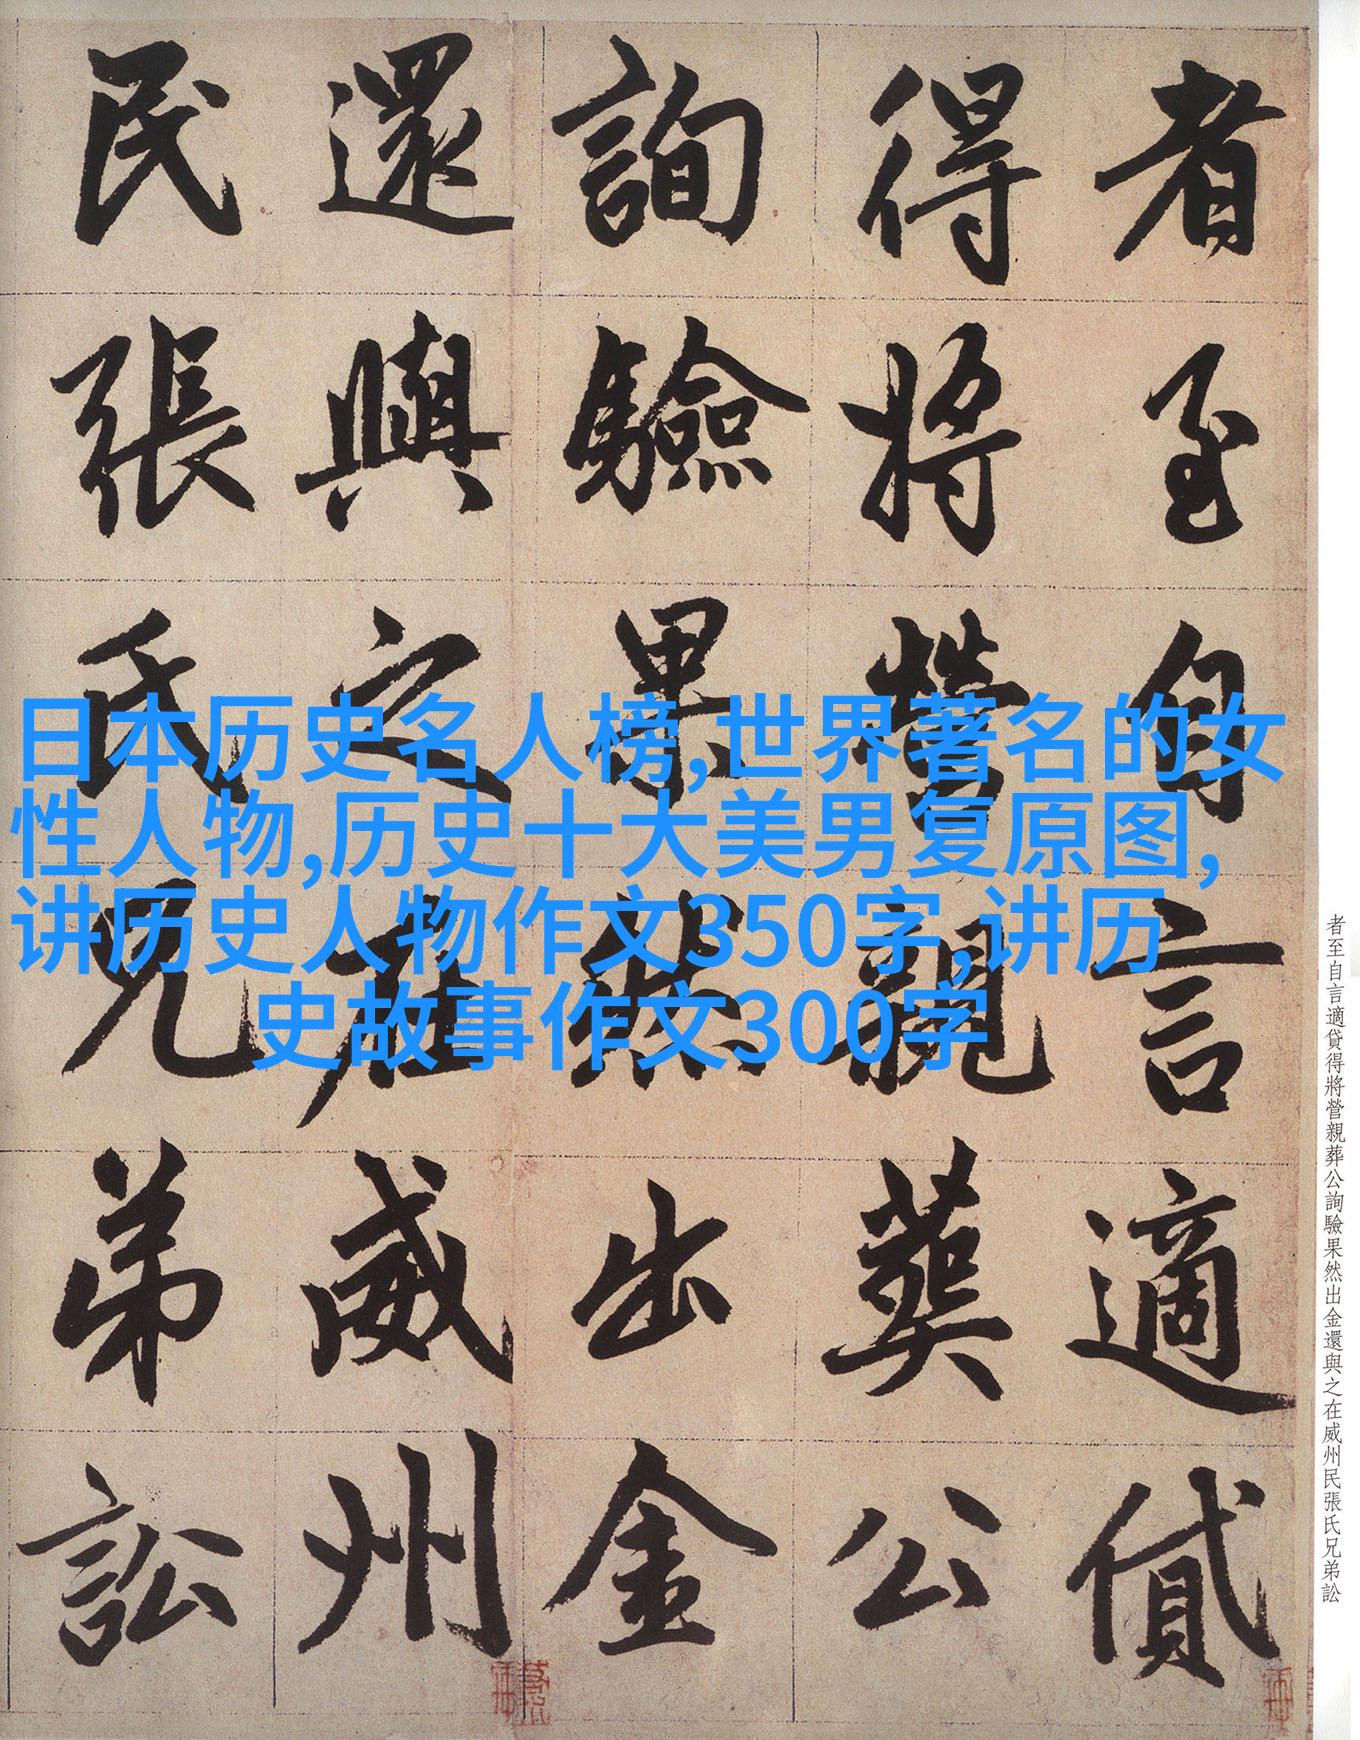 者至自言適貸
得將營親葬公
詢驗果然出金
還與之在威州
民張氏兄弟訟
日本历史名人榜,世界著名的女
性人物,历史十大美男复原图,
讲历史人物作文350字,讲历
史故事作文300字
者至自言適貸得將營親葬公詢驗果然出金還與之在威州民張氏兄弟訟